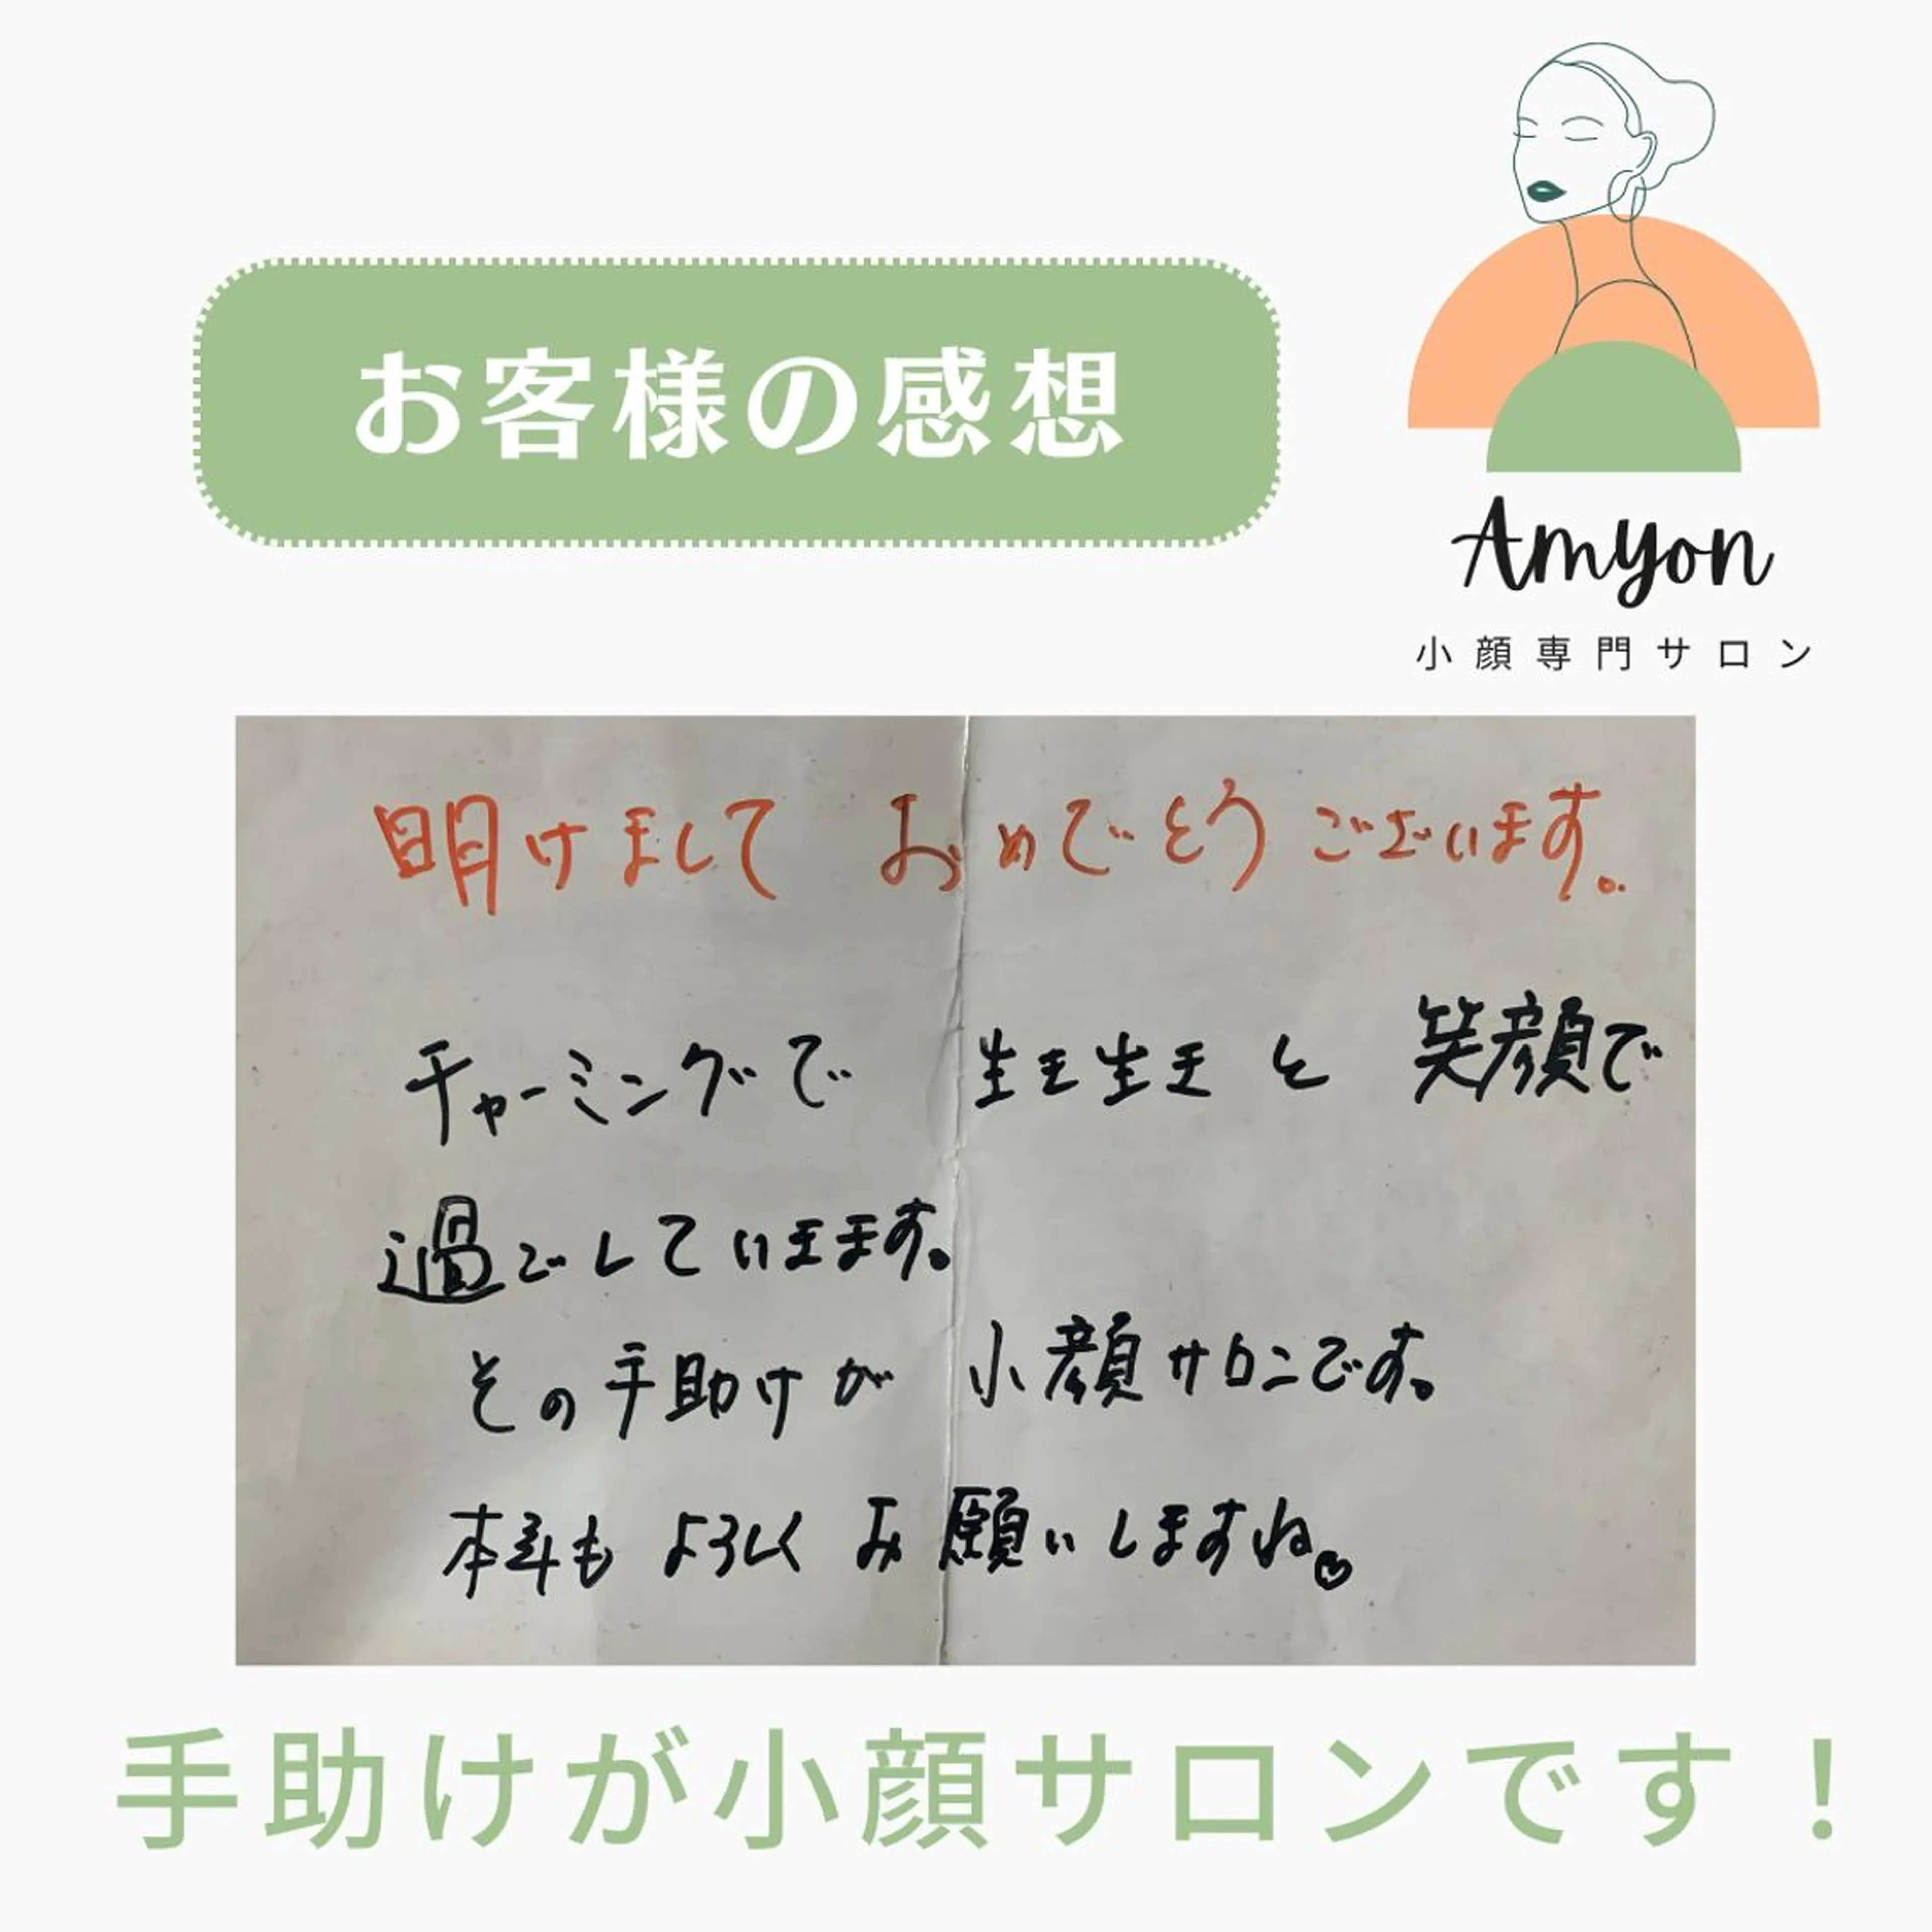 お客様の感想
Amyon
小顔専門サロン
明けまして おめでとうございます。
チャーミングで 生き生きと 笑顔で
過ごしています。
その手助けが 小顔サロンです。
本年も よろしく お願いしますね。
手助けが小顔サロンです！